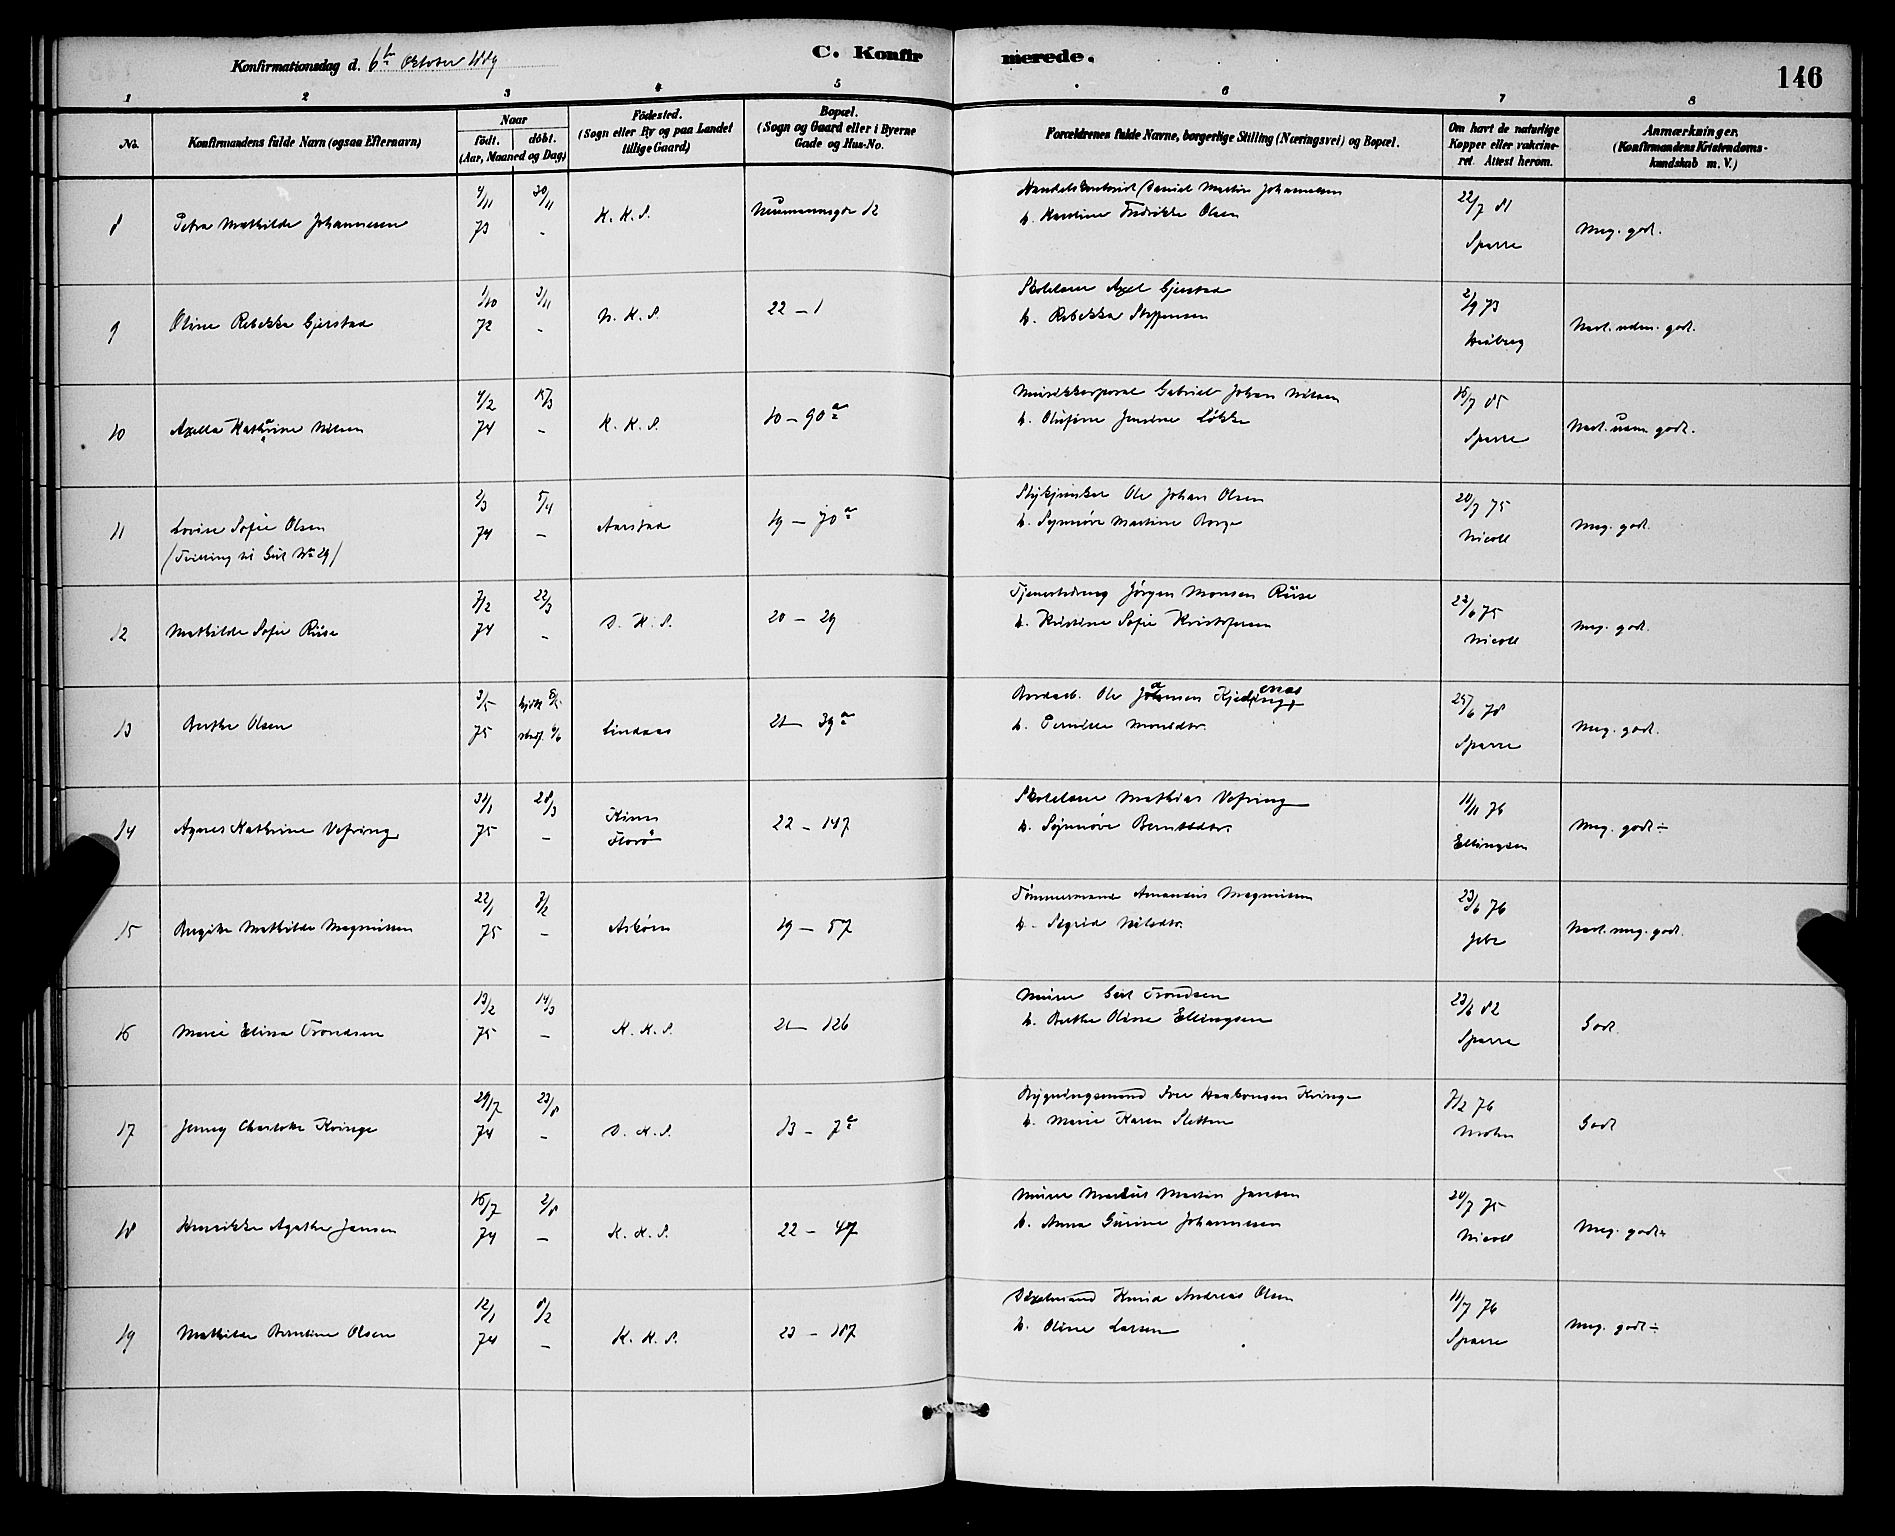 Konfirmationsdag d. 6te Oktober 1889
C. Konfirmerede.
146
1 2 3 4 5 6 7 8
No.
Konfirmandens fulde Navn (ogsaa Efternavn)
Naar
födt. döbt.
(Aar, Maaned og Dag)
Födested.
(Sogn eller By og paa Landet
tillige Gaard)
Bopæl.
(Sogn og Gaard eller i Byerne
Gade og Hus-No.
Forældrenes fulde Navne, borgerlige Stilling (Næringsvei) og Bopæl.
Om havt de naturlige
Kopper eller vakcine-
ret. Attest herom.
Anmærkninger.
(Konfirmandens Kristendoms-
kundskab m. V.)
8 Petra Mathilde Johannesen 4/11 73 30/11 - K. K. S. Neumannsgde 12
Daniel Martin Johannesen
h. Karoline Fredrikke Olsen
22/7 81 Sparre
Meg. godt.
9 Oline Rebekka Gjerstad 1/10 72 3/11 - N. K. S. 22 - 1
Skolelærer Axel Gjerstad
h. Rebekka Steffensen
2/9 73
Næst. uden. godt.
10 Axella Kathrine Nilsen 4/2 74 15/3 - K. K. S. 10 - 90a
Musikkorporal Gabriel Johan Nilsen
h. Olufine Jensine Løkke
16/7 85 Sparre
Næst. godt.
11 Lovise Sofie Olsen
(Tvilling til Gut No 29)
2/3 74 5/4 - Aarstad 19 - 70a
Ole Johan Olsen
h. Synnøve Martine Borge
20/7 75 Nicoll
Meg. godt.
12 Mathilde Sofie Riise 7/2 74 22/3 - D. K. S. 20 - 29
Jørgen Monsen Riise
h. Kristine Sofie Kristofersen
22/6 75 Nicoll
Meg. godt.
13 Berthe Olsen 3/5 75 hjdbt 8/5 stadf. 6/6 Lindaas 21 - 39a
Ole
h. Pernille Monsdtr.
25/6 78 Sparre
Meg. godt.
14 Agnes Kathrine Vefring 31/1 75 28/3 - Kinn
Florö 22 - 147
Skolelærer Mathias Vefring
h. Synnøve Berntsdtr.
11/11 76 Ellingsen
Meg. godt ÷
15 Birgithe Mathilde Magnussen 22/1 75 7/2 - Askøen 19 - 57
Tømmermand Amandus Magnussen
h. Sigrid Nilsdtr.
23/6 76 Jebe
Næst. meg. godt.
16 Marie Elisa Trondsen 13/2 75 14/3 - K. K. S. 21 - 126
Murer Gert Trondsen
h. Berthe Oline Ellingsen
23/6 82 Sparre
Godt.
17 Jenny Charlotte Kvinge 29/7 74 23/8 - D. K. S. 13 - 7a
Bygningsmand Iver Haakonsen Kvinge
h. Marie Karen Sletten
7/2 76 Mohn
Godt
18 Henrikke Agathe Jansen 16/7 74 2/8 - K. K. S. 22 - 47
Murer Markus Martin Jansen
h. Anna Gurine Johannesen
20/7 75 Nicoll
Meg. godt÷
19 Mathilde Berntine Olsen 12/1 74 8/2 - K. K. S. 23 - 187
Knud Andreas Olsen
h. Oline Larsen
11/7 76 Sparre
Meg. godt ÷